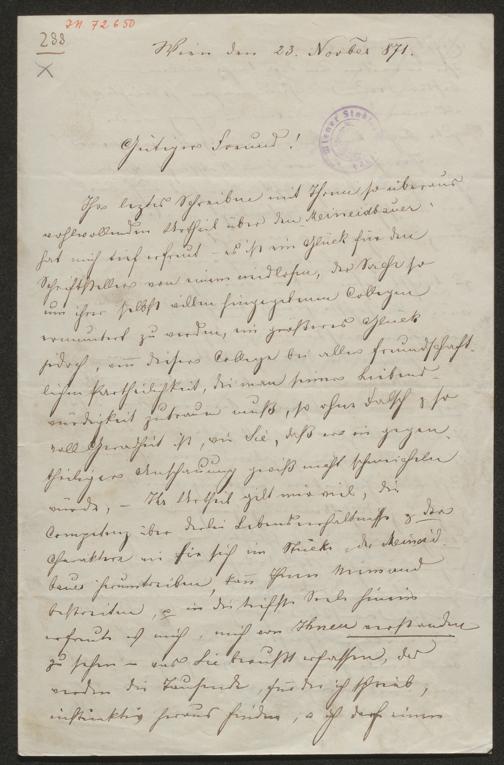 IN 72650
233
Wien den 23. Novber 871.
Wiener Stadt
Gütiger Freund!
Ihr leztes Schreiben mit Ihrem so überaus
wohlwollenden Urtheil über den „Meineidbauer“
hat mich tief erfreut – es ist ein Glück für den
Schriftsteller von einem neidlosen, der Sache so
um ihrer selbst willen hingegebenen Collegen
ermuntert zu werden, ein größeres Glück
jedoch, wenn dieser College bei aller freundschaft-
lichen Partheilichkeit, die man seiner Liebens-
würdigkeit zutrauen muß, so ohne Falsch & so
voll Geradheit ist, wie Sie, daß er in gegen-
theiliger Anschauung gewiß nicht schmeicheln
würde, – Ihr Urtheil gilt mir viel, die
Competenz über derlei Lebensverhältnisse & der
Charaktere wie sie sich im Stücke, der Meineid
bauer herumtreiben, kann Ihnen Niemand
bestreiten, & in die tiefste Seele hinein
erfreute es mich, mich von Ihnen verstanden
zu sehen – was Sie bewußt erfassen, das
werden die Tausende, für die ich schrieb,
instinktiv heraus finden, o ich darf einen